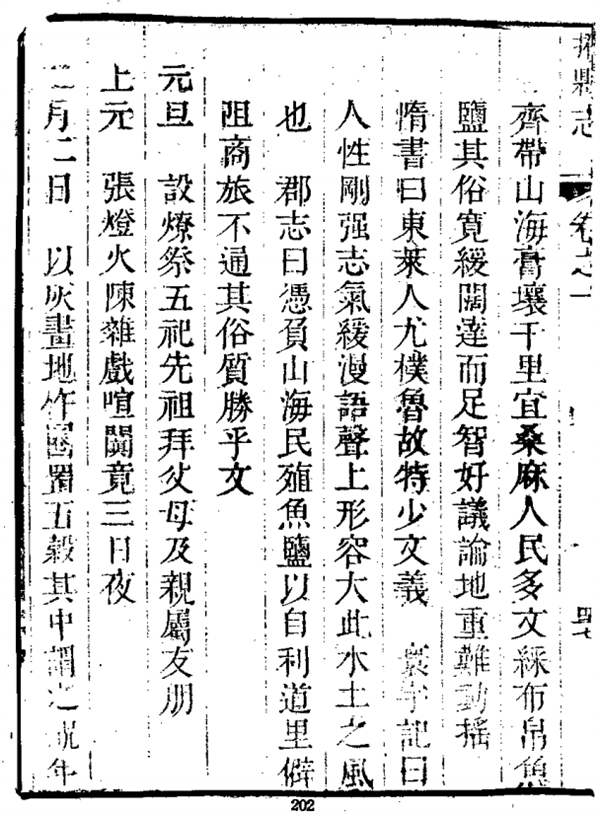 縣志 卷之一
齊帶山海膏壤千里宜桑麻人民多文綵布帛魚
鹽其俗寬緩闊達而足智好議論地重難動搖
隋書曰東萊人尤樸魯故特少文義 寰宇記曰
人性剛强志氣緩漫語聲上形容大此水土之風
也 郡志曰憑負山海民殖魚鹽以自利道里僻
阻商旅不通其俗質勝乎文
元旦 設燎祭五祀先祖拜父母及親屬友朋
上元 張燈火陳雜戲喧闐竟三日夜
二月二日 以灰畫地作囷置五穀其中謂之
202